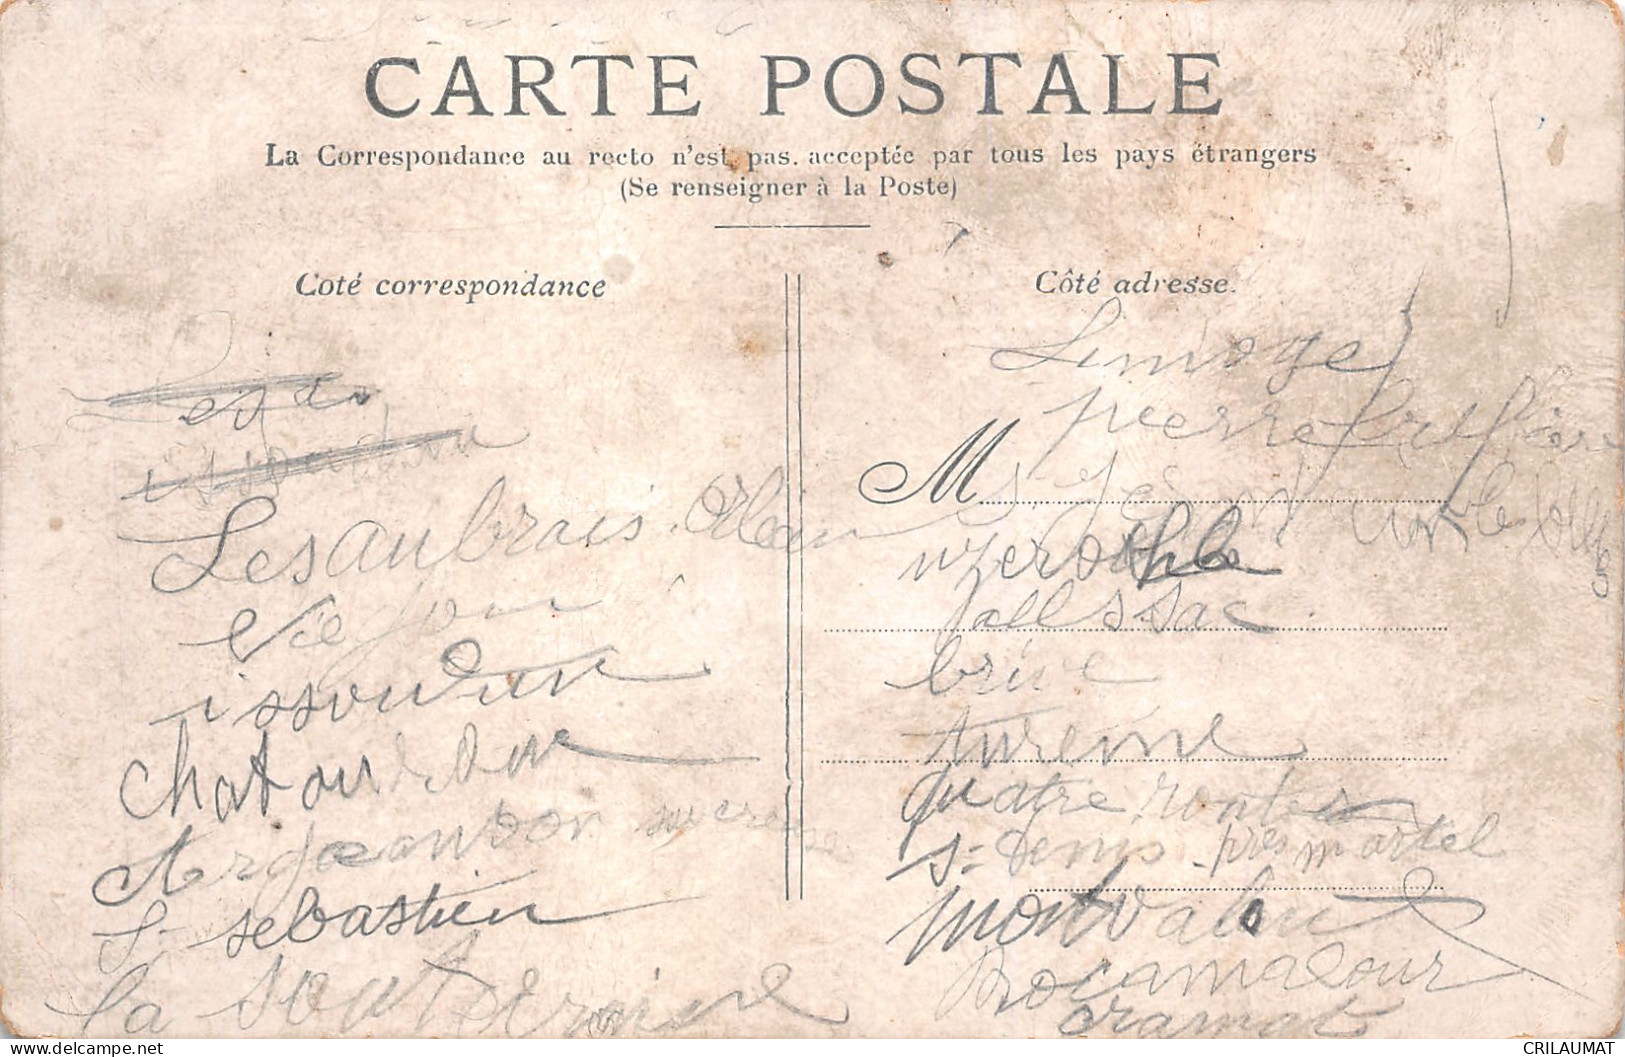 CARTE POSTALE
La Correspondance au recto n'est pas acceptée par tous les pays étrangers
(Se renseigner à la Poste)
Coté correspondance
Les aubrais Orléan
Viejon
issoudun
chatouroux
Argeanton sur creuse
St sebastien
la soutterraine
Côté adresse.
Limoges
pierre Buffière
M
St germain les belles
uzerche
allassac
brive
turenne
quatre routes
St denis près martel
montvalent
Rocamadour
Gramat
CRILAUMAT